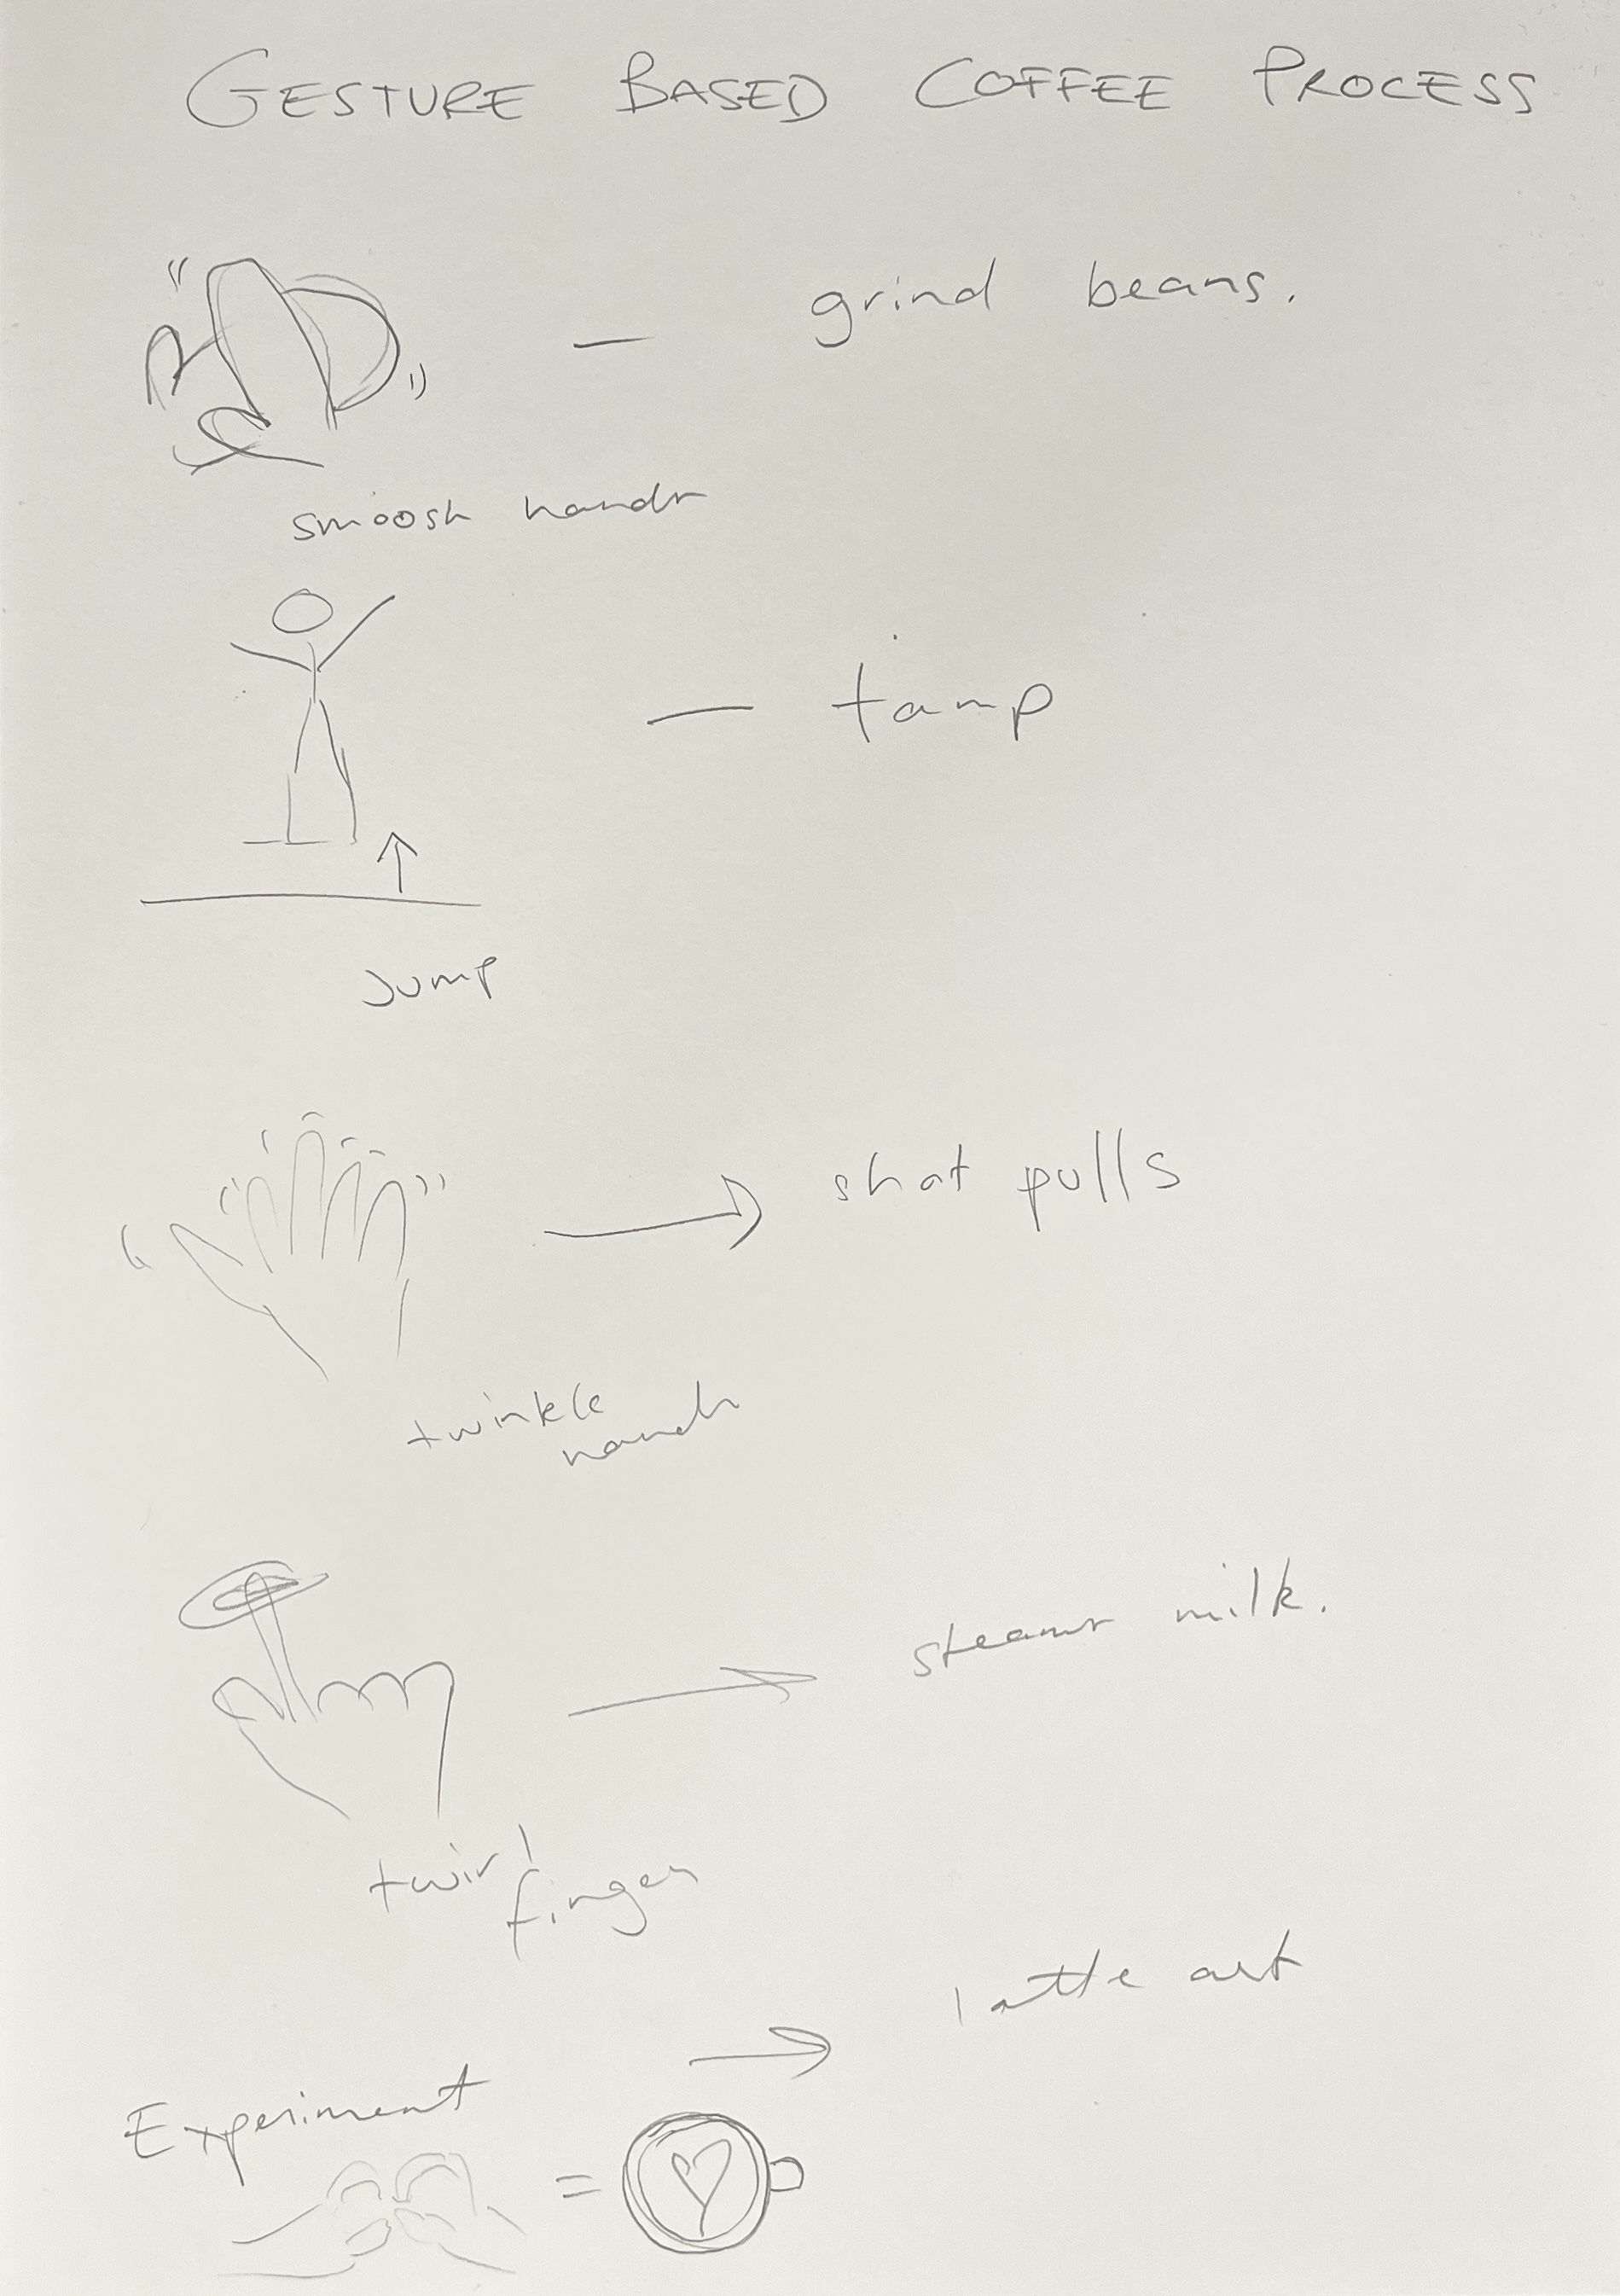 GESTURE BASED COFFEE PROCESS
— grind beans.
smoosh hands
— tamp
Jump
→ shot pulls
twinkle
hands
→ steams milk.
twirl
finger
→ latte art
Experiment
=